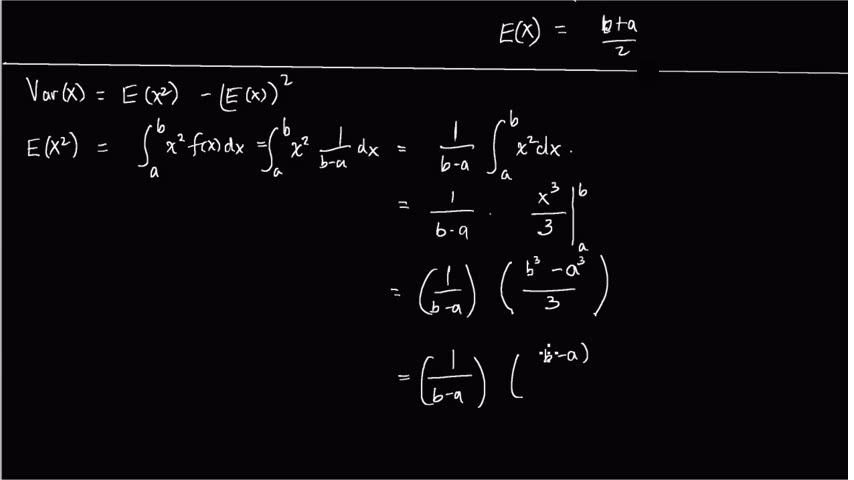 E(X) = \frac{b+a}{2}
Var(x) = E(x²) - (E(x))²
E(X²) = \int_a^b x² f(x) dx = \int_a^b x² \frac{1}{b-a} dx = \frac{1}{b-a} \int_a^b x² dx.
= \frac{1}{b-a} \cdot \frac{x^3}{3} |_a^b
= (\frac{1}{b-a}) (\frac{b^3 - a^3}{3})
= (\frac{1}{b-a}) ( b-a)